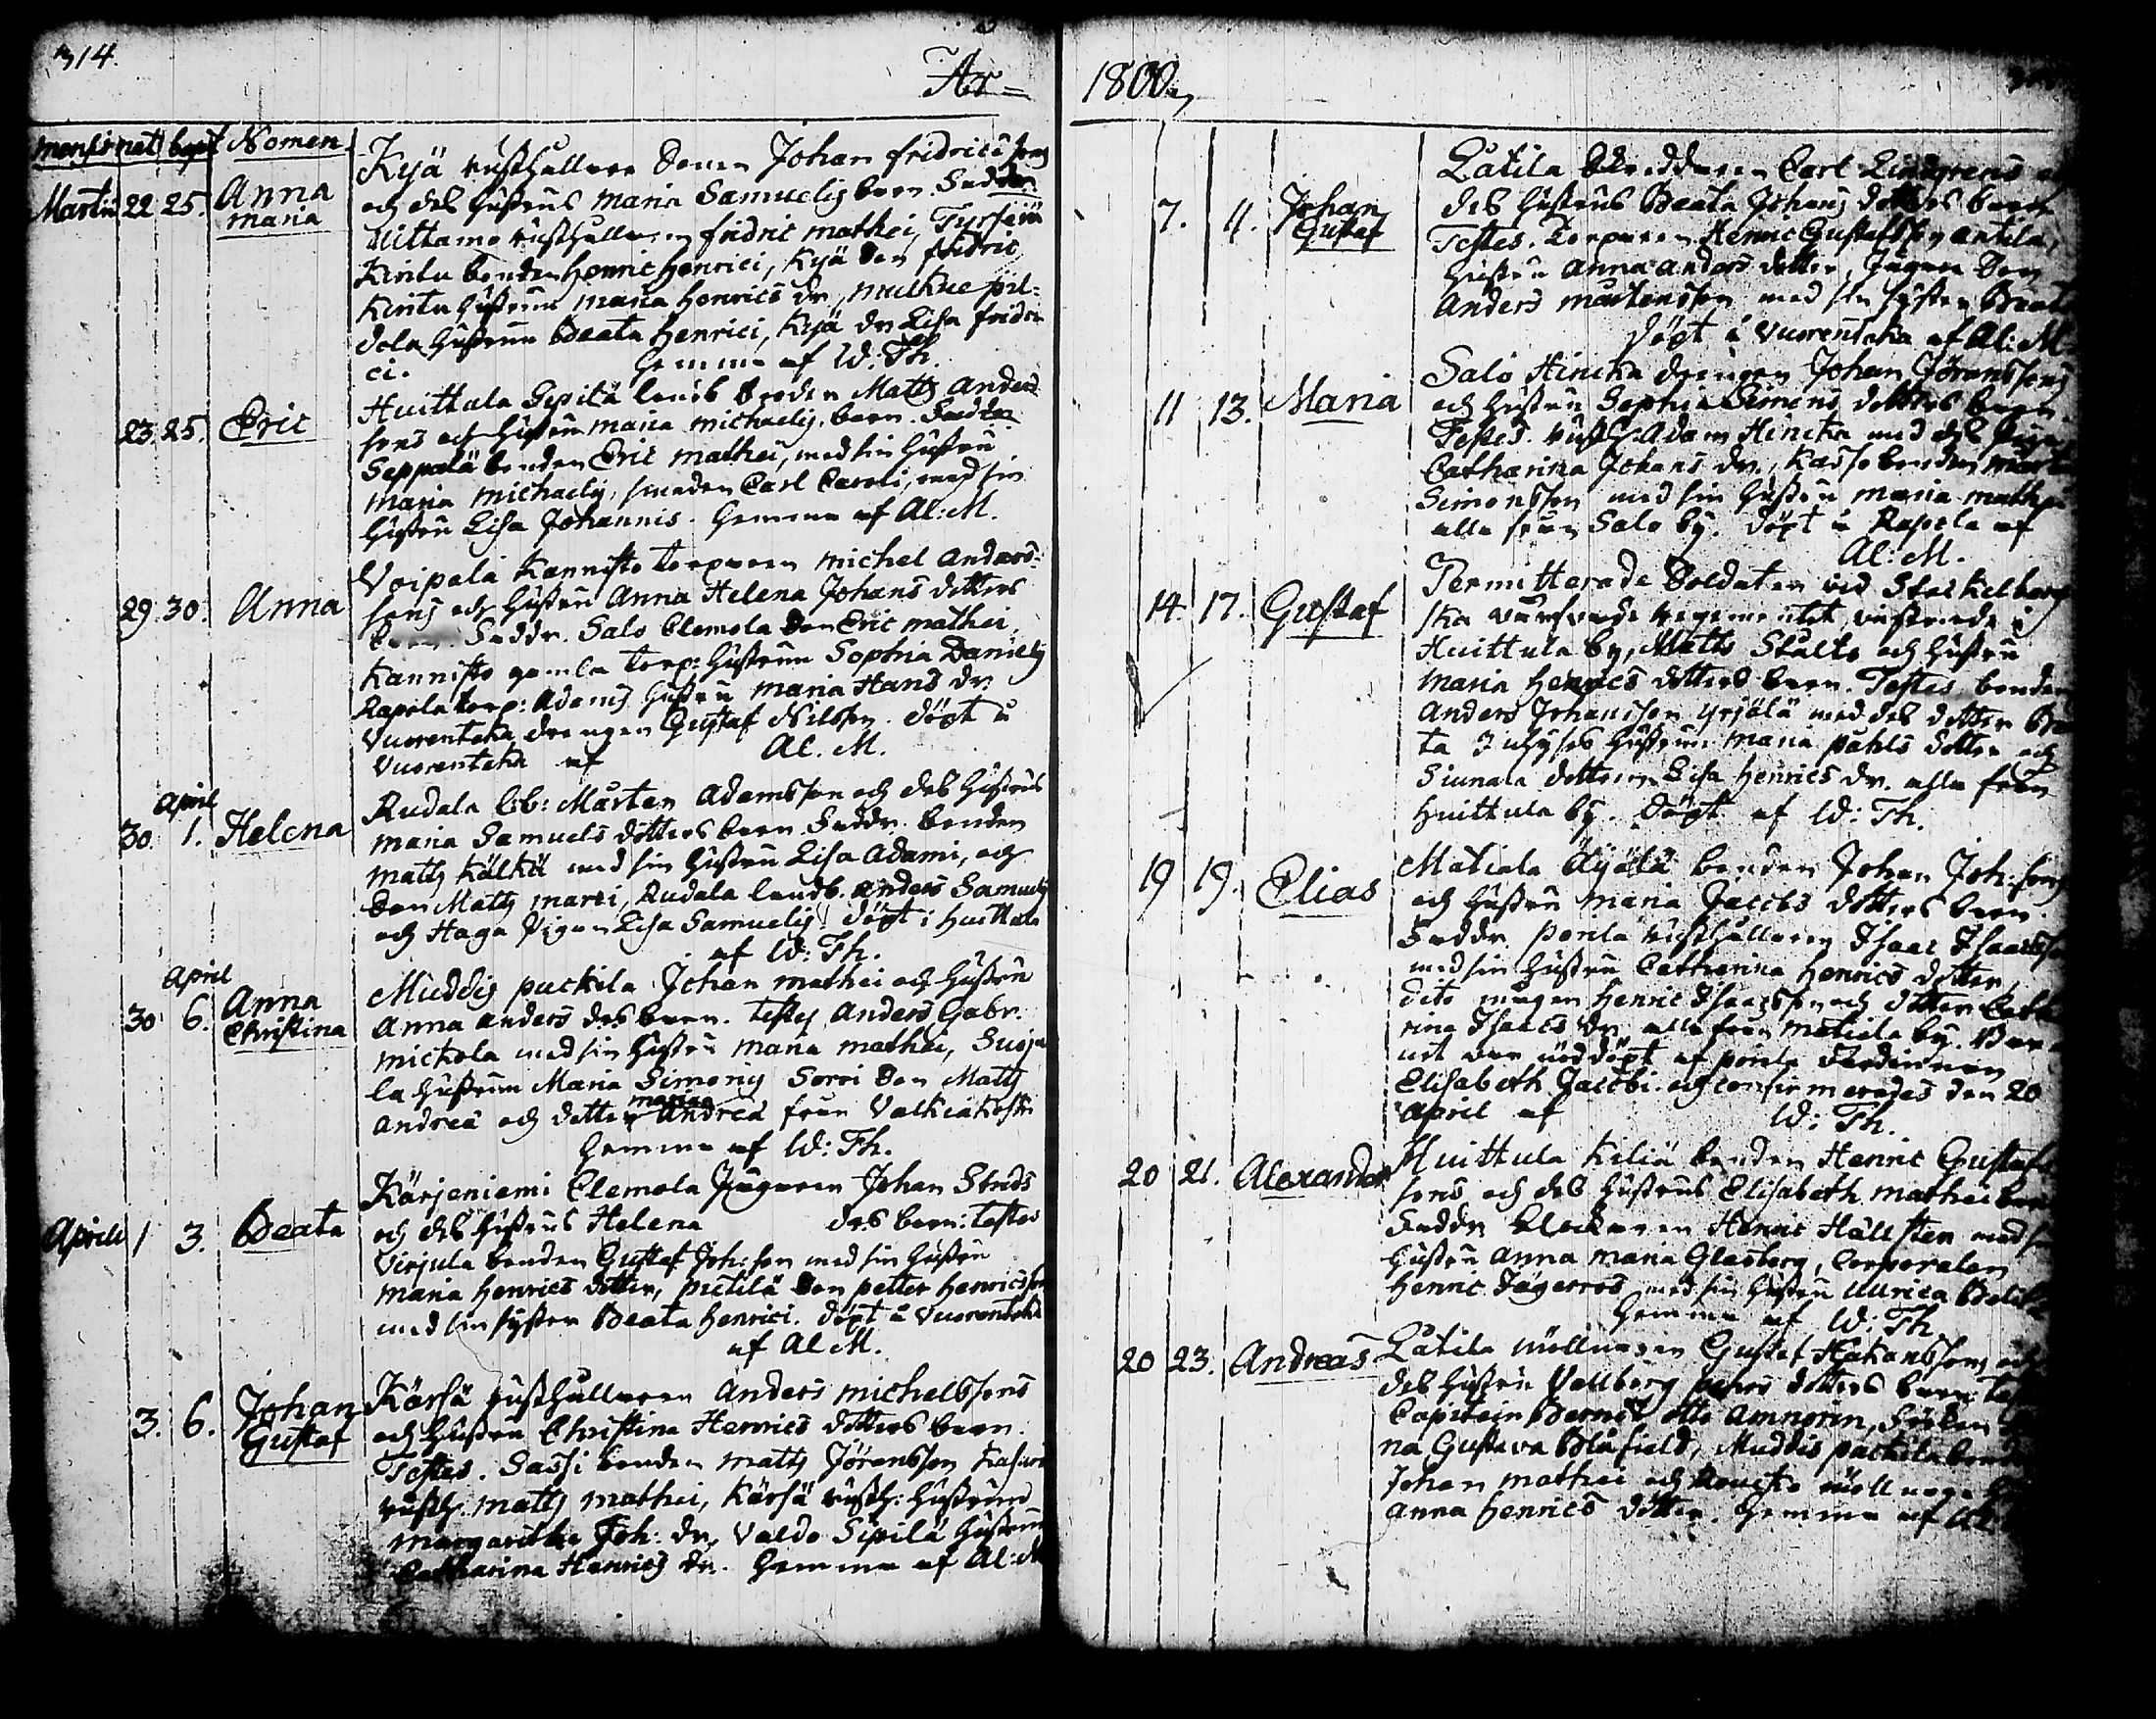 314.
Åhr
1800
mensis nat: bapt Nomen
Martii 22 25. Anna Maria
Kyä rusthållare Sonen Johan fridricsons
och des hustrus Maria Samuelis barn. Faddr.
Uittamo rusthållaren fridric mathei,
Kirilu bonden Henric Henrici, Kyä Son fridric
Kirilu hustrun Maria Henrics dr,
dola hustrun Beata Henrici, Kyä dr Lisa fridri
ci. Hemma af W: Th.
23. 25. Eric
Huittula Sepilä bonden Matts Anders
sons och hustru Maria Michaelis barn. Faddr.
Seppälä bonden Eric Mathei, med sin hustru
Maria Michaelis, smeden Carl Caroli, med sin
hustru Lisa Johannis. Hemma af Al: M.
29. 30. Anna
Voipala Kannisto torparen Michel Anders
sons och hustru Anna Helena Johans dotters
barn. Faddr. Salo Clemola Son Eric mathei,
Kannisto gamla torp: hustrun Sophia Danielis
Rapola torp: Adams hustru Maria Hans dr.
Vuorentaka drengen Gustaf Nilsson. döpt i
Vuorentaka af Al. M.
April
30. 1. Helena
Rudala Mårten Adamsson och des hustrus
Maria Samuels dotters barn. Faddr. bonden
Matts Kälkö med sin hustru Lisa Adami, och
Son Matts Marci, Rudala landb. Anders Samuelis
och Haga Pigan Lisa Samuelis. döpt i Huittula
af W: Th.
April
30 6. Anna Christina
Muddis packila Johan mathei och hustru
Anna Anders drs barn. Testes Anders Gabr.
Mickola med sin hustru Maria mathei,
la hustrun Maria Simonis Sorri Son Matts
Andreæ och dotter Maria Andreæ från Valkiakoski
Hemma af W: Th.
Aprill 1 3. Beata
Kärjeniemi Clemola Jägaren Johan Strids
och des hustrus Helena drs barn: Testes
Virjula bonden Gustaf Joh: son med sin hustru
Maria Henrics dotter, pietilä Son petter Henricsson
med sin syster Beata Henrici. döpt i Vuorentaka
af Al M.
3. 6. Johan Gustaf
Kärsä rusthållaren Anders Michelssons
och hustru Christina Henrics dotters barn.
Testes. Sassi bonden Matts Jöransson
rusth. Matts Mathei, Kärsä rusth: hustrun
Margaretha Joh: dr, Valdo Sipilä hustrun
Catharina Henrics dr. Hemma af Al: M
7. 11. Johan Gustaf
Latila Skreddaren Carl Lindgrens och
des hustrus Beata Johans dotters barn
Testes. Torparen Henric Gustafsson Antila,
hustru Anna Anders dotter, Jägare Son
Anders Mårtensson med sin syster Beata
döpt i Vuorentaka af Al: M
11 13. Maria
Salo Hincka drengen Johan Jöranssons
och hustru Sophia Simons dotters barn
Testes. rusth: Adam Hincka med des Piga
Catharina Johans dr, Kasso bonden Mårten
Simonsson med sin hustru Maria mathei
alla från Salo by. döpt i Rapola af
Al: M.
14. 17. Gustaf
Permitterade Soldaten vid Stackelberg
ska värfvade regementet, vistande i
Huittula by, Matts Stålts och hustru
Maria Henrics dotters barn. Testes bonden
Anders Johansson Yrjälä med des dotter Bea
ta hustrun Maria påhls dotter och
Siunala dotteren Lisa Henrics dr. alla från
Huittula by. döpt af W: Th.
19 19. Elias
Matiala Äijälä bonden Johan Joh: sons
och hustru Maria Jacobs dotters barn.
Faddr. porila rusthållaren Isaac Isaacsson
med sin hustru Catharina Henrics dotter,
dito mågen Henric Isaacsson och dotter Catha
rina Isaacs dr. alla från Matiala by. Bar
net var nöddöpt af porila Värdinnan
Elisabeth Jacobi. och confirmerades den 20
April af W: Th.
20 21. Alexander
Huittula Kiliä bonden Henric Gustafs
sons och des hustrus Elisabeth mathei barn
Faddr Klockaren Henric Hällsten med sin
hustru Anna Maria Glasberg, Corporalen
Henric Jägerros med sin hustru Ulrica
Hemma af W: Th
20 23. Andreas
Latila möllnaren Gustaf Håkanssons och
des hustru Vallborg pehrs dotters barn: Tes
Capitein Bernd Otto Amnorin, Fröken
na Gustava Blåfield, Muddis packila bonden
Johan mathei och möllnare
Anna Henrics dotter. Hemma af Al: